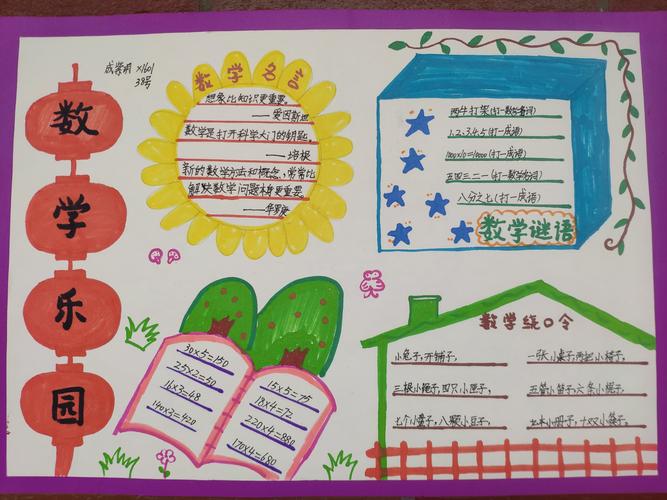 数学乐园
x1601
38号
数学名言
想象比知识更重要。
——爱因斯坦
数学是打开科学大门的钥匙。
——培根
新的数学方法和概念,常常比
解决数学问题本身更重要。
——华罗庚
两牛打架(打一数学名词)
1、2、3、4、5(打一成语)
100×10=1000(打一成语)
五四三二一(打一数学名词)
八分之七(打一成语)
数学谜语
30×5=150
25×2=50
16×3=48
140×3=420
15×5=75
18×4=72
220×4=880
170×4=680
数学绕口令
小兔子,开铺子,
一张小桌子,两把小椅子,
三根小绳子,四只小匣子,
五管小笛子,六条小棍子,
七个小盘子,八颗小豆子,
九本小册子,十双小筷子。